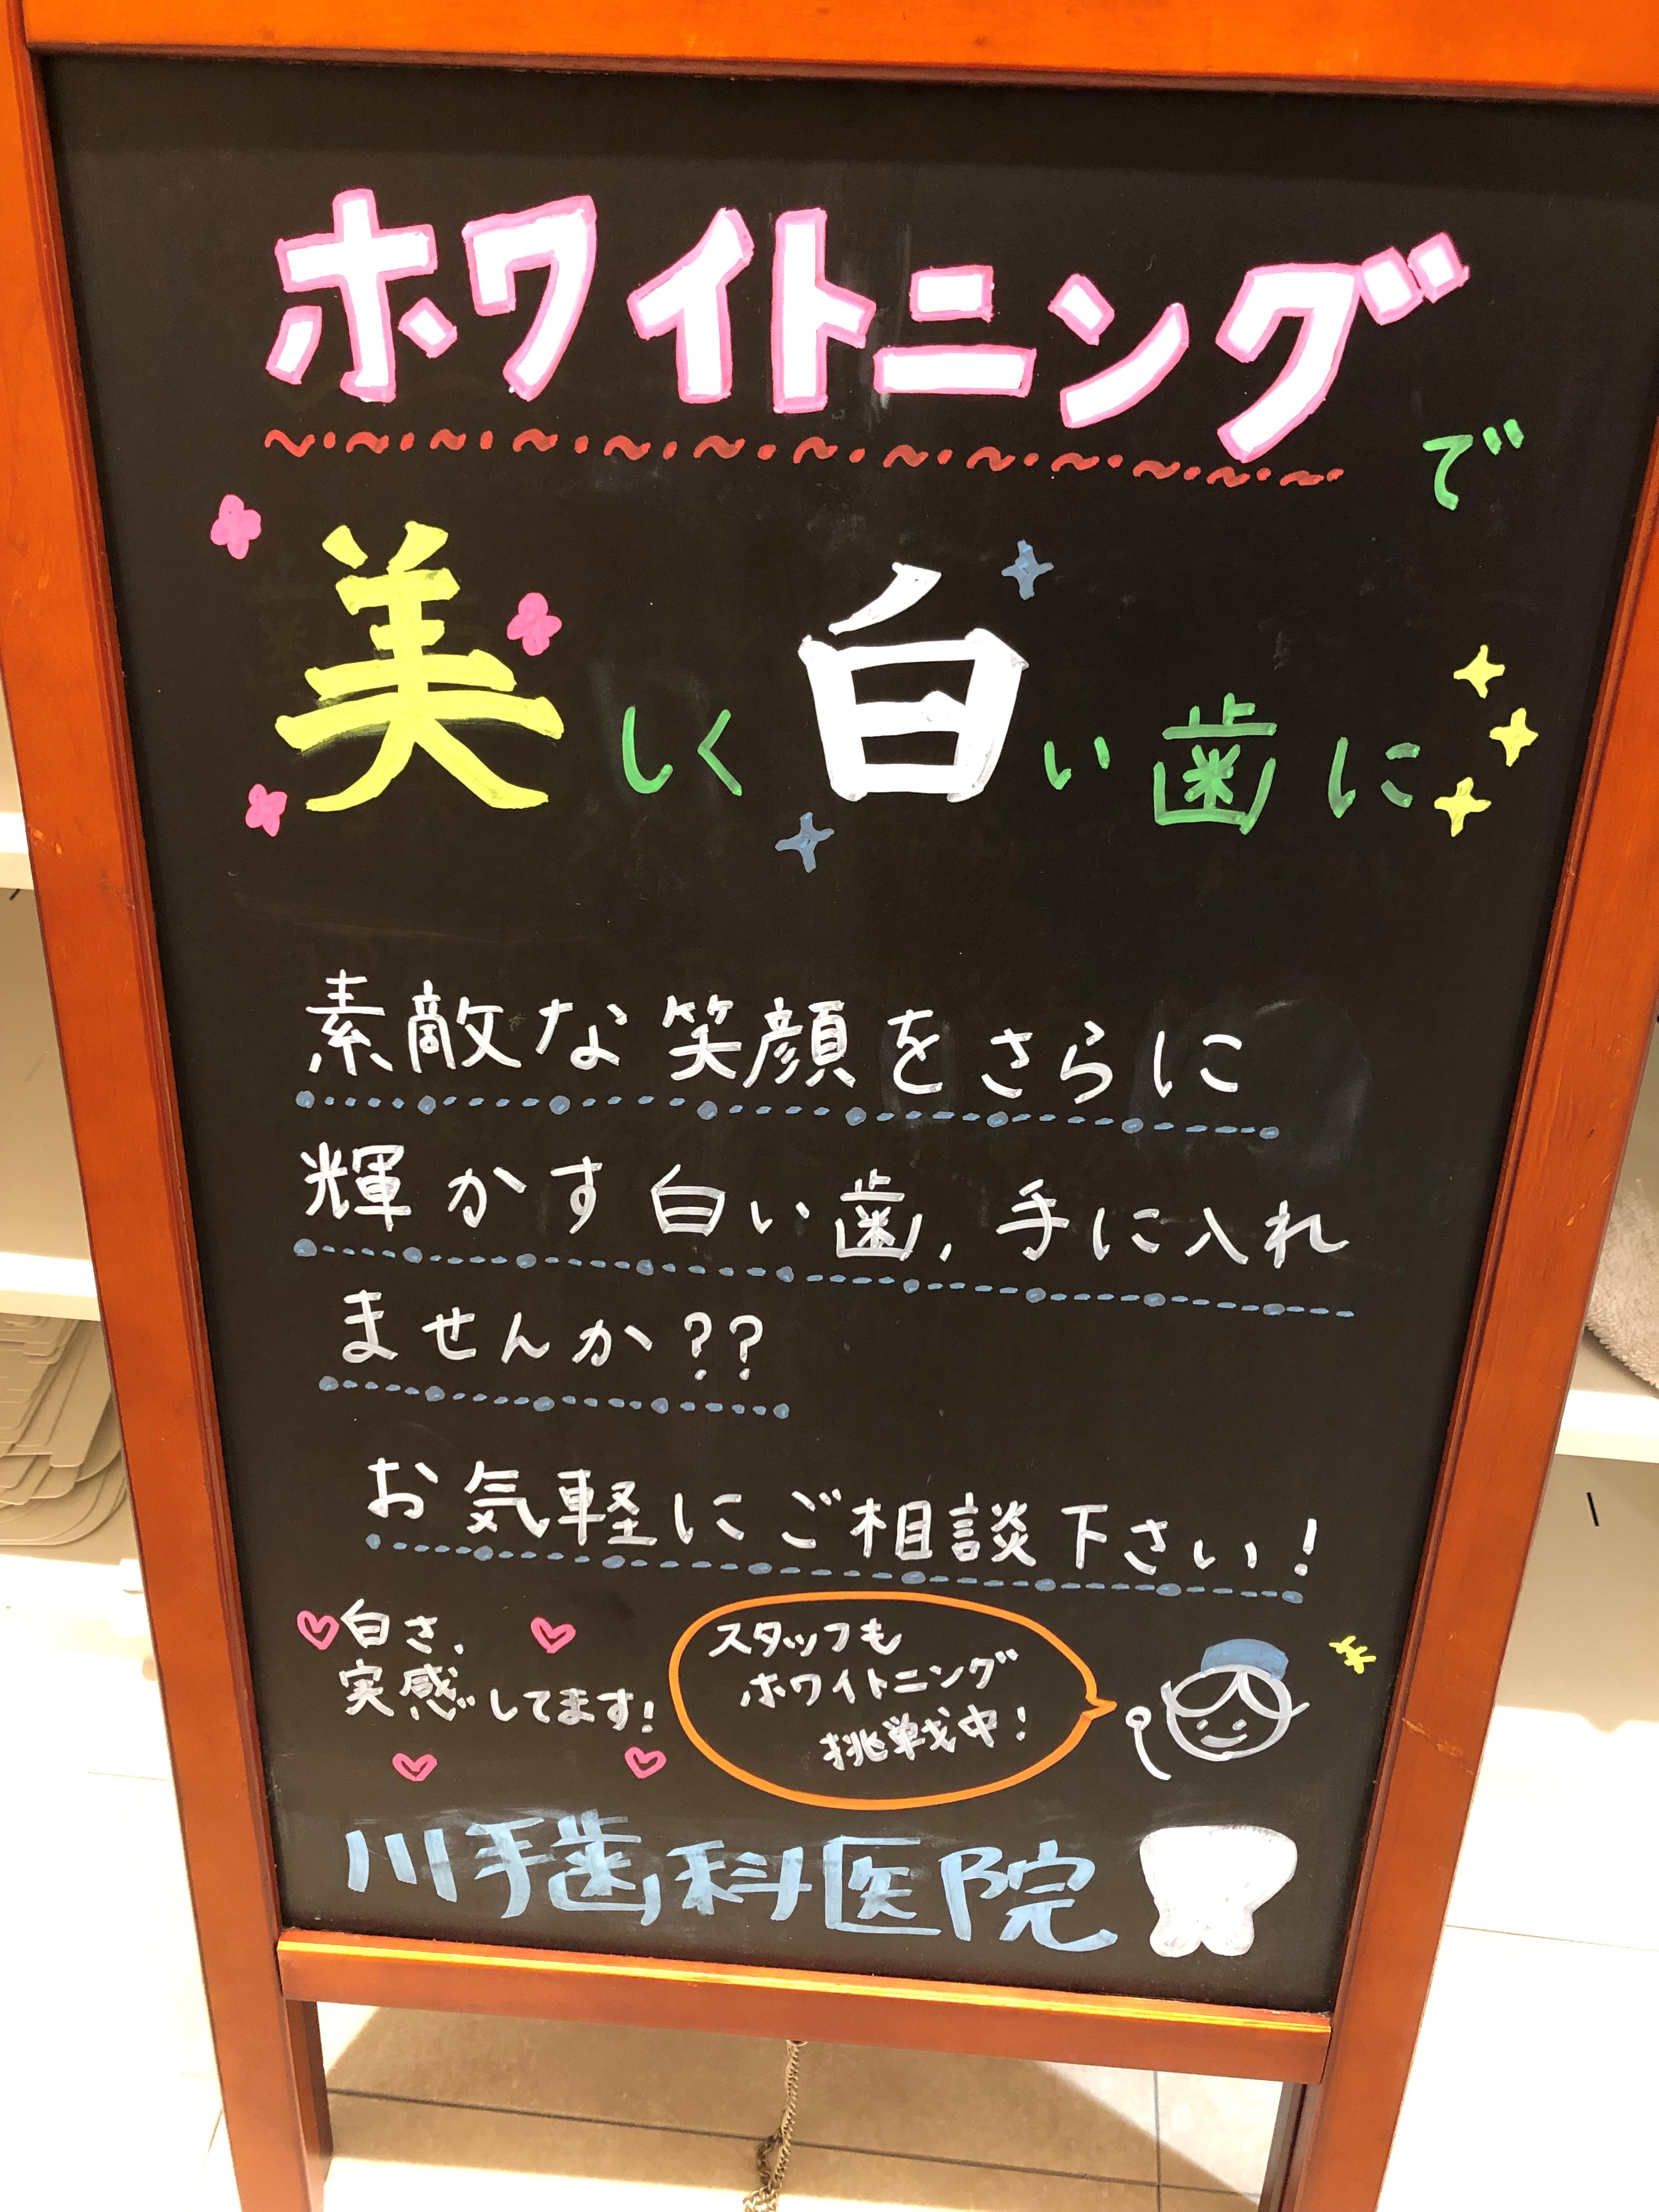 ホワイトニングで
美しく白い歯に
素敵な笑顔をさらに
輝かす白い歯、手に入れ
ませんか??
お気軽にご相談下さい!
白さ、
実感してます!
スタッフも
ホワイトニング
挑戦中!
川手歯科医院